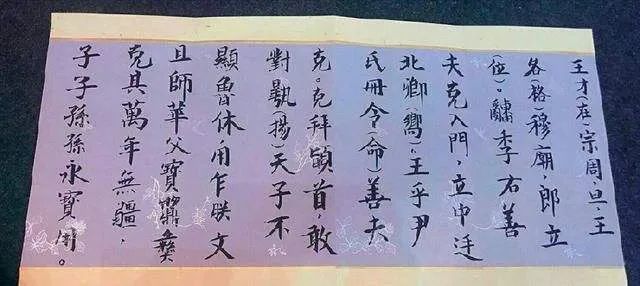 王才(在)宗周,旦,王
各(格)穆廟,郎立
(位)。季右善
夫克入門,立中廷
北卿(嚮),王乎尹
氏冊令(命)善夫
克。克拜𩒨首,敢
對(揚)天子不
顯魯休,用乍朕文
且師華父寶彝
克其萬年無疆,
子子孫孫永寶用。